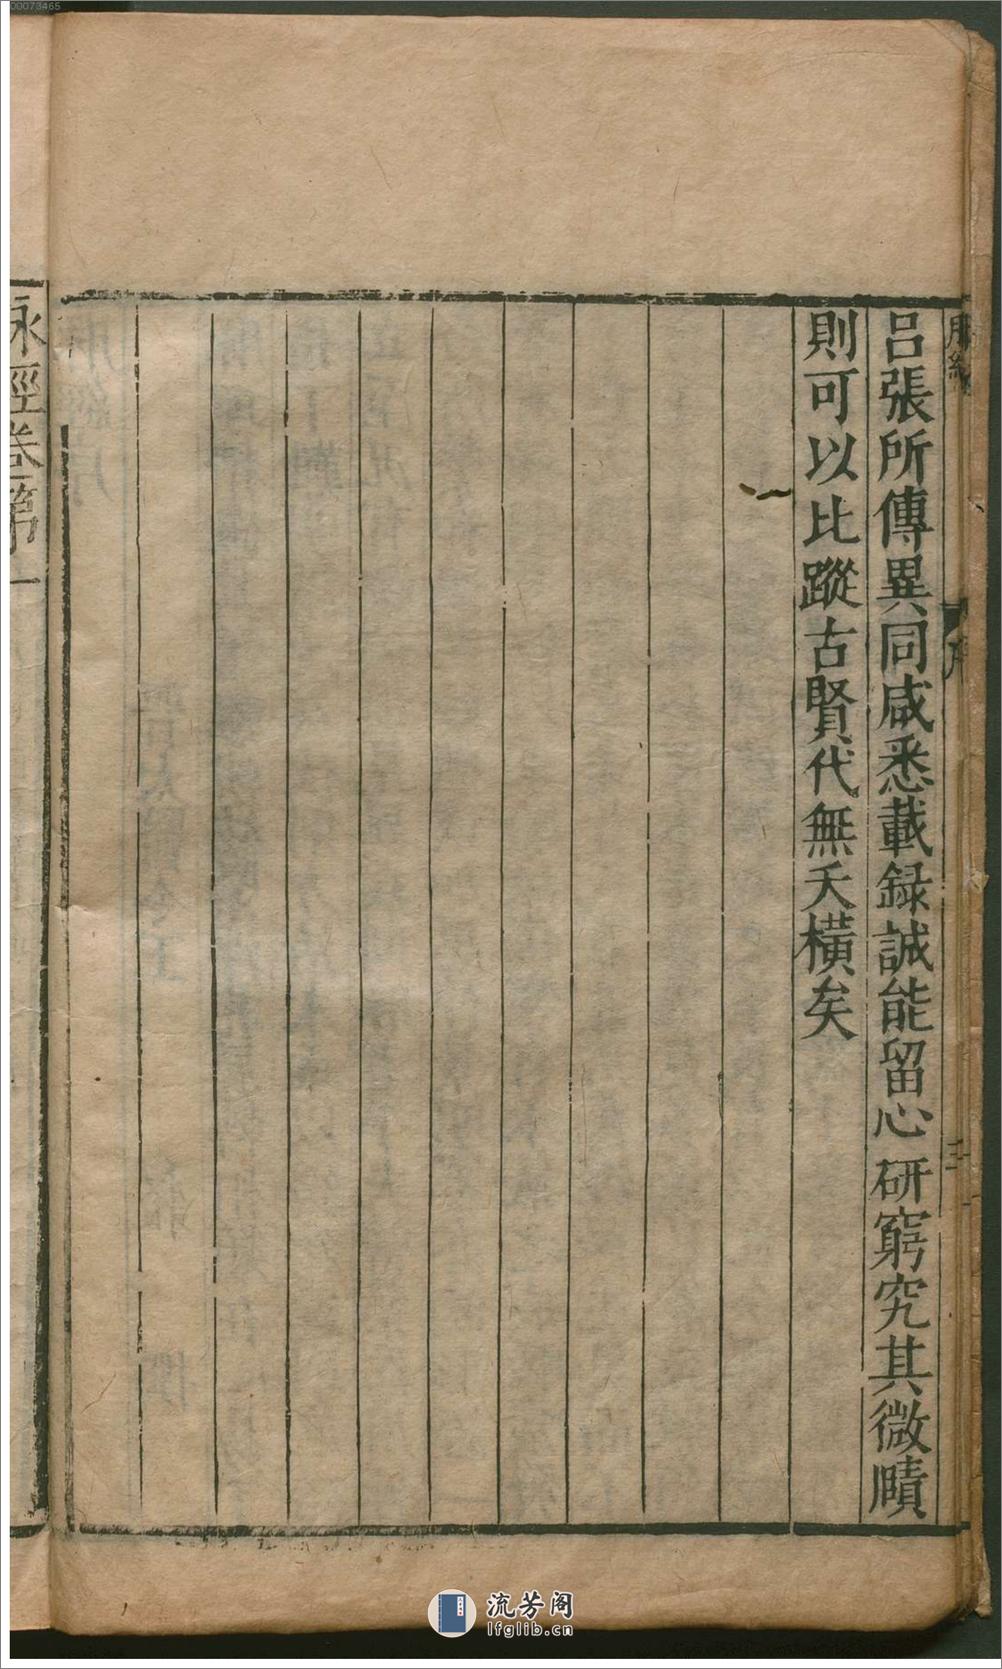 呂張所傳異同咸悉載録誠能留心研窮究其微賾
則可以比蹤古賢代無夭橫矣
脉經卷第一
00073465
流芳阁
lfglib.cn